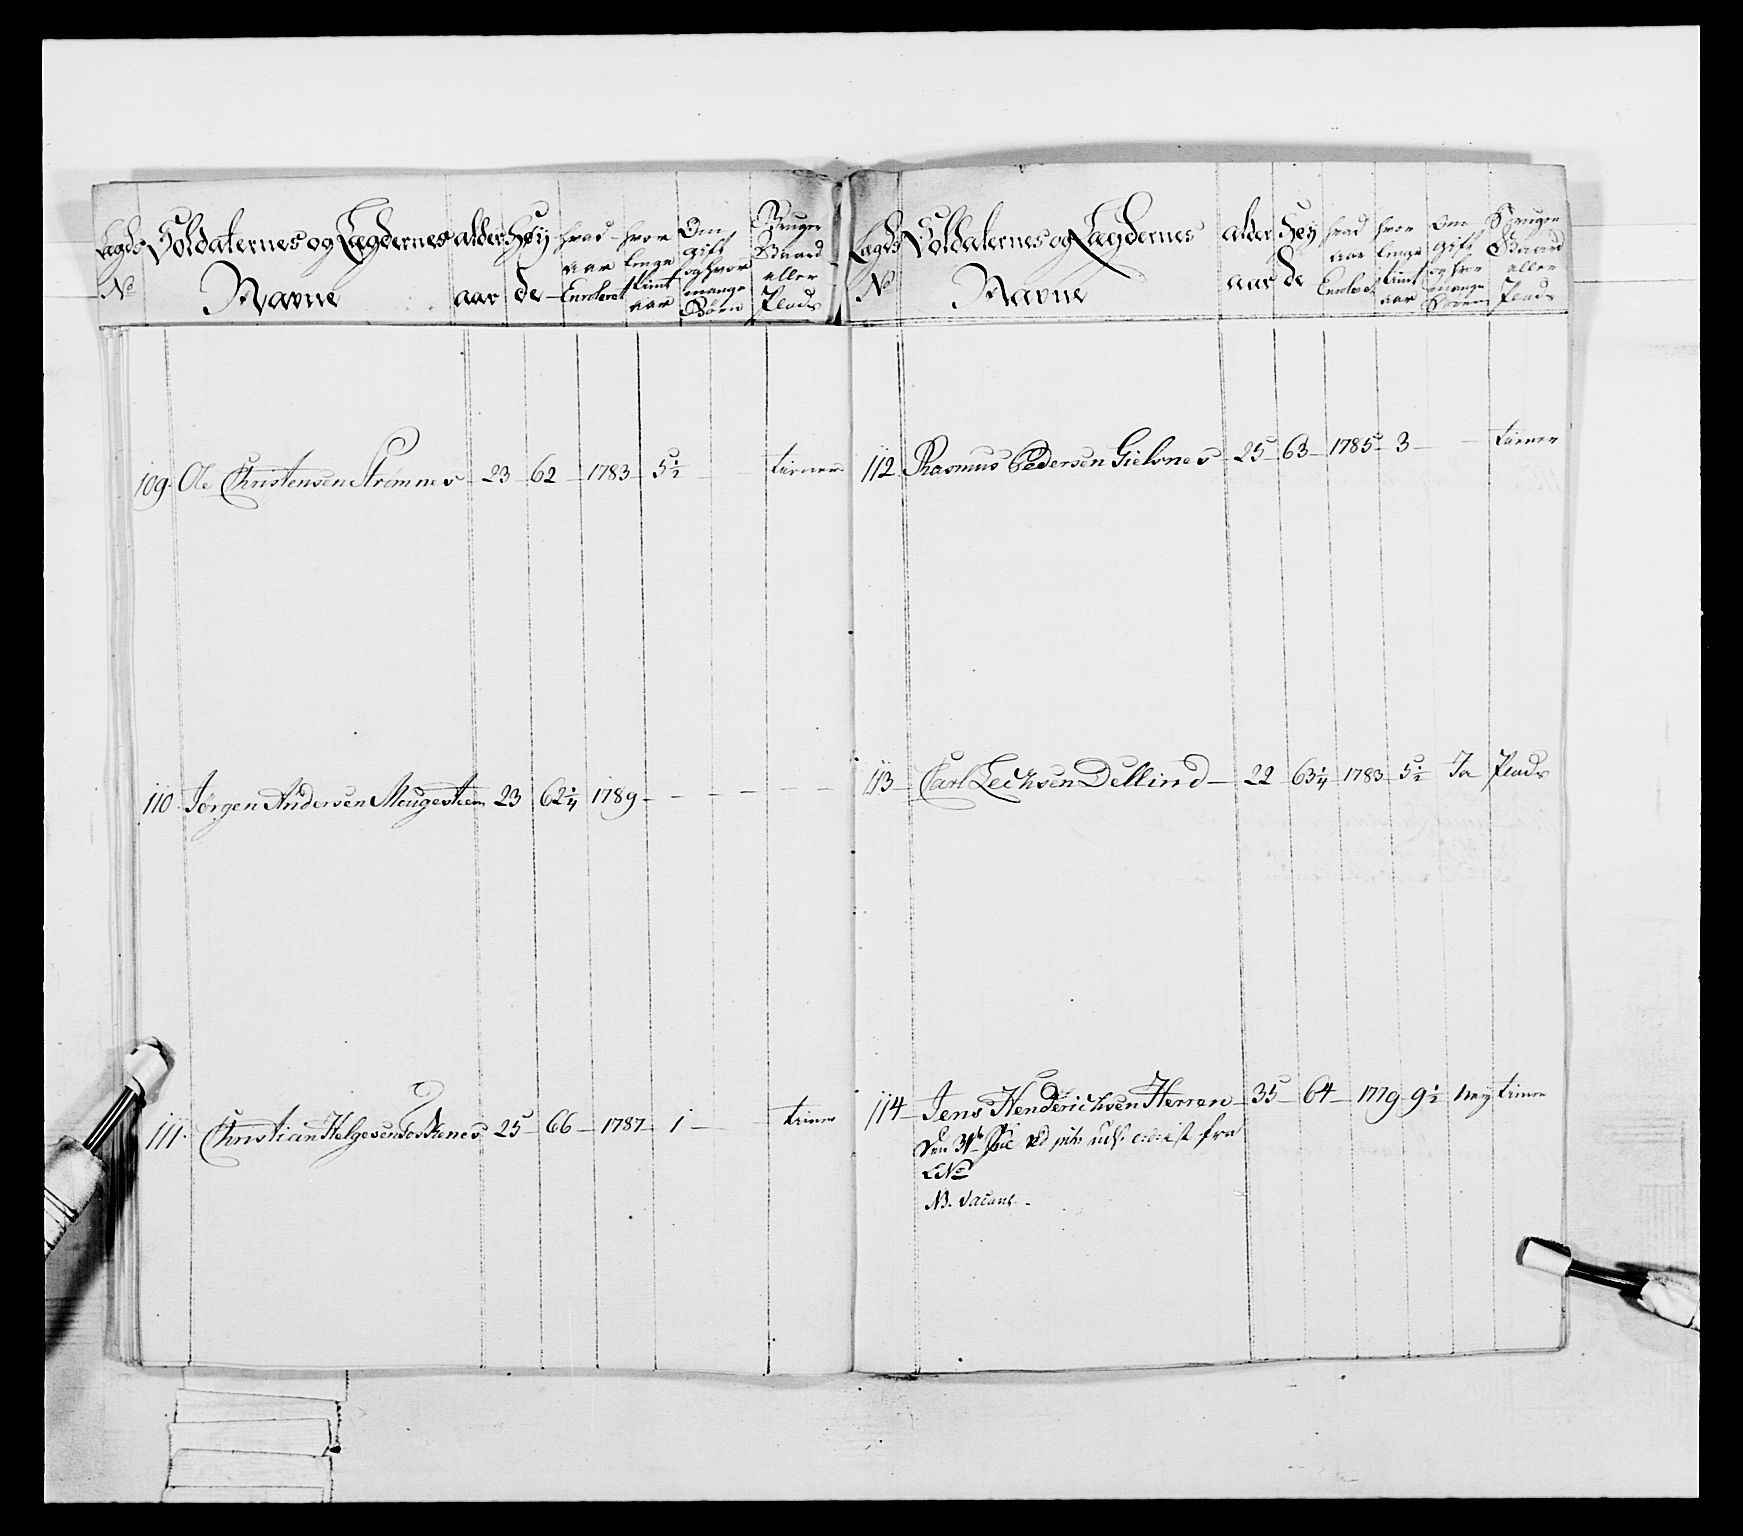 Lægds No
Soldaternes og Lægdernes Navne
alder aar
Høyde
hvad aar Enrolert
hvor længe tient aar
Om gift og hvor mange Børn
Bruger Gaard eller Plads
109. Ole Christensen Strømnes 23 62 1783 5½ tiener
110. Jørgen Andersen 23 62¼ 1789
111. Christian Helgesen 25 66 1787 1 tiener
Lægds No
Soldaternes og Lægdernes Navne
alder aar
Høyde
hvad aar Enrolert
hvor længe tient aar
Om gift og hvor mange Børn
Bruger Gaard eller Plads
112 Rasmus Pedersen Gielsnes 25 63 1785 3 tiener
113 Carl Dellind 22 63¼ 1783 5½ Ja Plads
114 Jens Henderichsen Herren 35 64 1779 9½ ney tiener
fra
LNo
NB. Vacant.